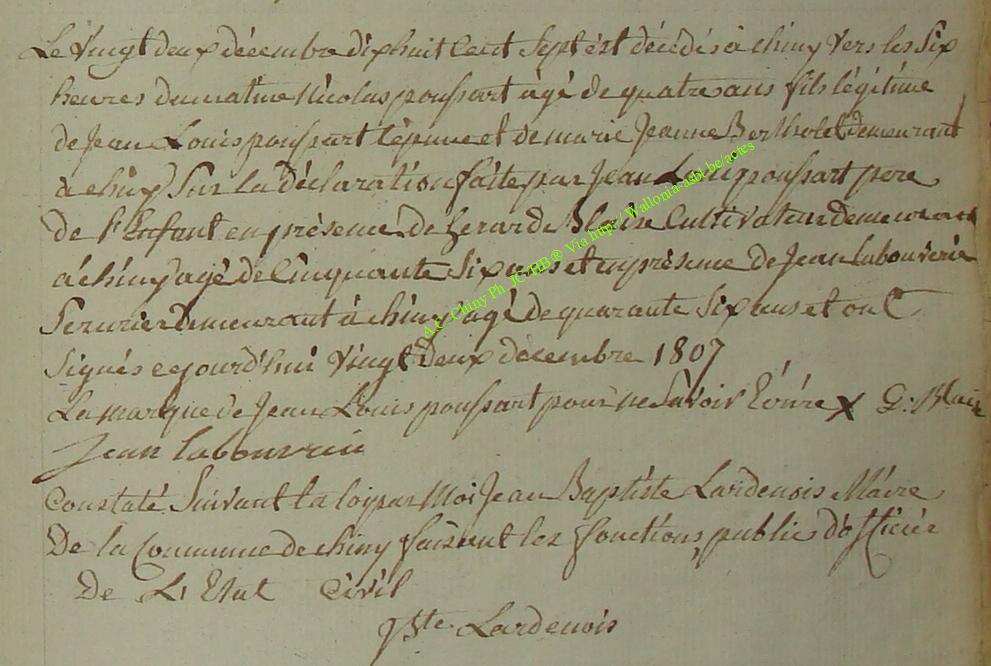 Le vingt deux décembre dix huit Cent Sept est décédés à chiny vers les Six
heures du matine Nicolas poussart agé de quatre ans fils légitime
de Jean Louis poussart lépine et de marie Jeanne Bertholet demeurant
à chiny Sur La déclaration faite par Jean Louis poussart pere
de l'Enfant en présence de Gerard Blaise Cultivateur demeurant
à chiny agé de Cinquante Six ans et en présence de Jean labouverie
Serurier demeurant à chiny agé de quarante Six ans et ont
Signés cejourd'hui vingt deux décembre 1807
La marque de Jean Louis poussart pour ne Savoir Ecrire X G: Blaise
Jean labouverie
Constaté Suivant la loi par Moi Jean Baptiste Lardenois Maire
De la Commune de chiny faisant les fonctions public d'officier
De L'Etat Civil
Bte Lardenois
A.E. Chiny Ph JC HB ® Via http://Wallonia-asbl.be/actes